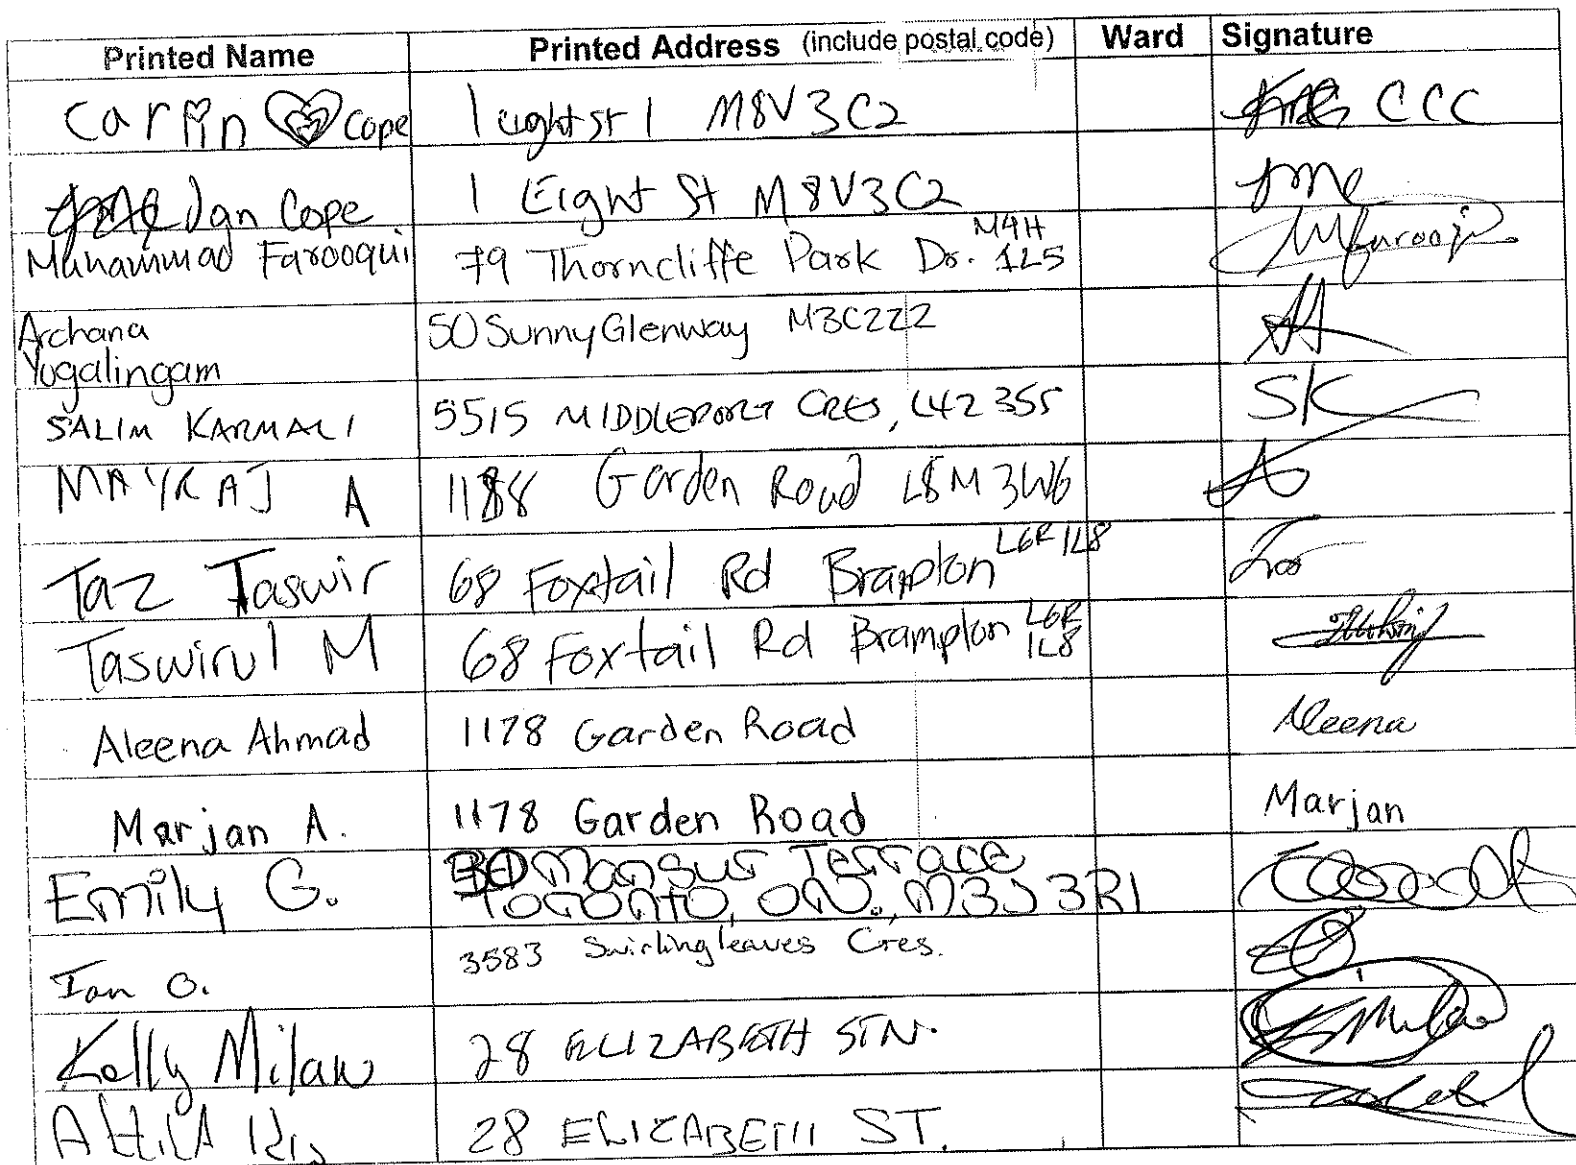 Printed Name Printed Address (include postal code) Ward Signature
Carlin Cope 1 eight st 1 M8V3C2 CCC
Jan Cope 1 Eight St M8V3C2
Muhammad Farooqui 79 Thorncliffe Park Dr. M4H 1L5 MFarooqui
Archana Yugalingam 50 SunnyGlenway M3C2Z2
SALIM KARMALI 5515 MIDDLEPORT CRES, L4Z 3S5 SK
MAYRAJ A 1188 Garden Road L8M 3W6
Taz Taswir 68 Foxtail Rd Brampton L6R 1L8
Taswirul M 68 Foxtail Rd Brampton L6R 1L8
Aleena Ahmad 1178 Garden Road Aleena
Marjan A. 1178 Garden Road Marjan
Emily G. 30 Mansur Terrace
Toronto, ON., M3J 3R1
Ian O. 3583 Swirlingleaves Cres.
Kelly Milan 28 ELIZABETH ST N.
Attila Kis 28 ELIZABETH ST.